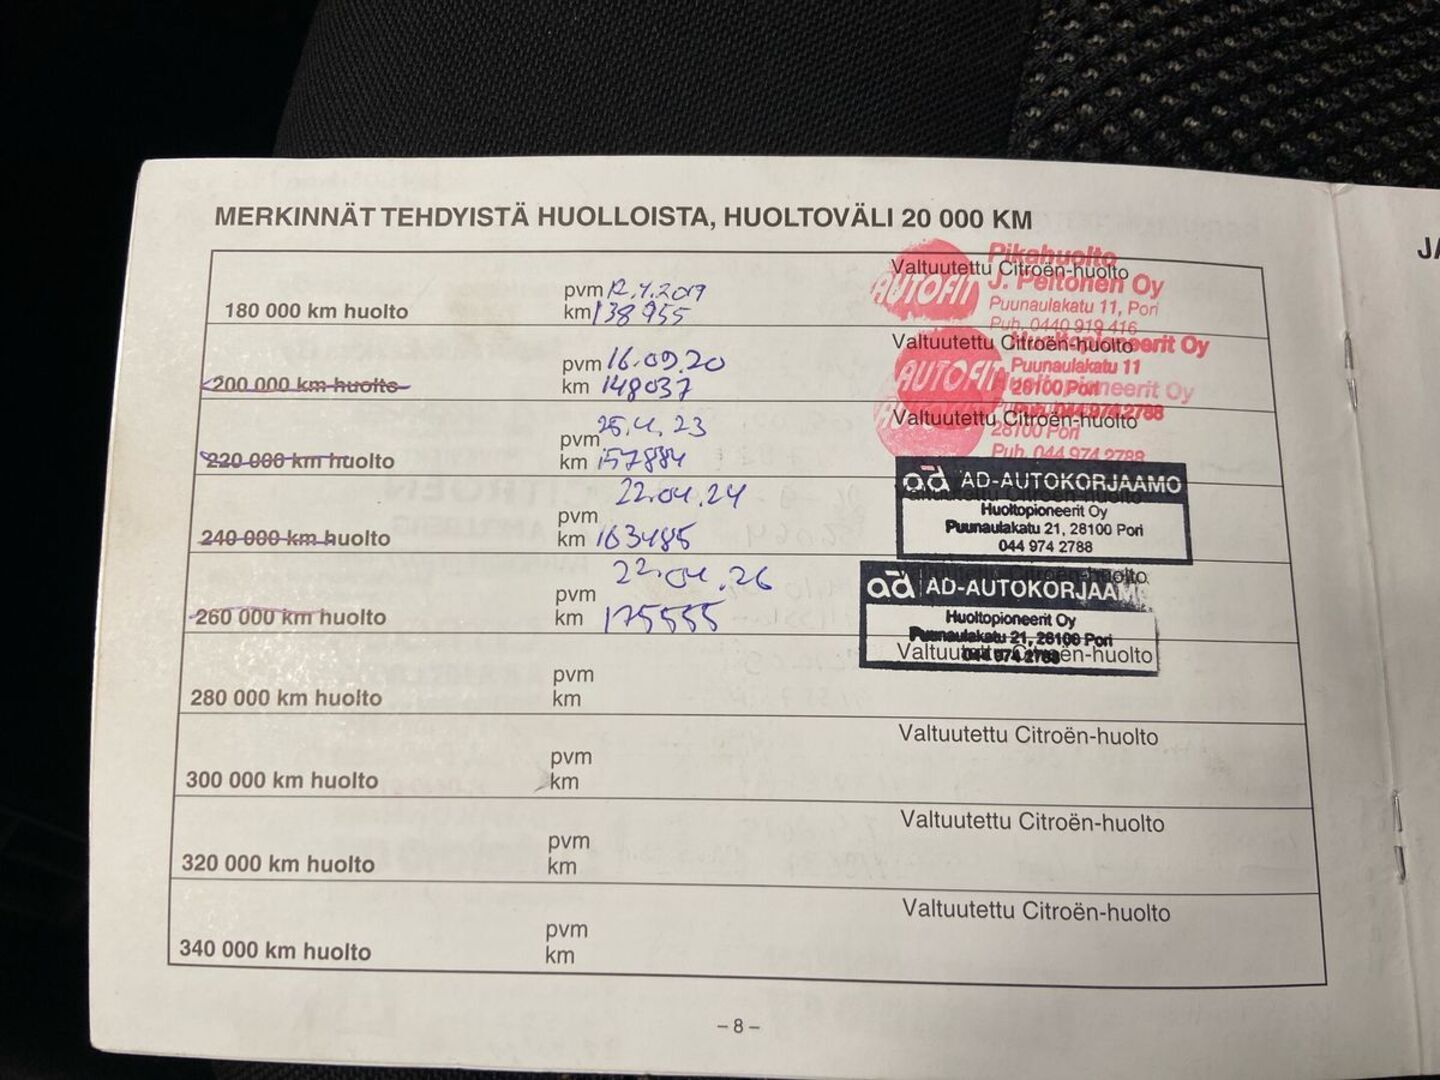 MERKINNÄT TEHDYISTÄ HUOLLOISTA, HUOLTOVÄLI 20 000 KM
JA
180 000 km huolto
pvm 12.4.2019
km 138955
Valtuutettu Citroën-huolto
AUTOFIT
Pikahuolto
J. Peltonen Oy
Puunaulakatu 11, Pori
Puh. 0440 919 416
200 000 km huolto
pvm 16.09.20
km 148037
Valtuutettu Citroën-huolto
AUTOFIT
Huoltopioneerit Oy
Puunaulakatu 11
28100 Pori
Puh. 044 974 2788
220 000 km huolto
pvm 25.4.23
km 157884
Valtuutettu Citroën-huolto
Huoltopioneerit Oy
28100 Pori
Puh. 044 974 2788
240 000 km huolto
pvm 22.04.24
km 163485
Valtuutettu Citroën-huolto
ad AD-AUTOKORJAAMO
Huoltopioneerit Oy
Puunaulakatu 21, 28100 Pori
044 974 2788
260 000 km huolto
pvm 22.04.26
km 175555
Valtuutettu Citroën-huolto
ad AD-AUTOKORJAAM
Huoltopioneerit Oy
Puunaulakatu 21, 28100 Pori
044 974 2788
280 000 km huolto
pvm
km
Valtuutettu Citroën-huolto
300 000 km huolto
pvm
km
Valtuutettu Citroën-huolto
320 000 km huolto
pvm
km
Valtuutettu Citroën-huolto
340 000 km huolto
pvm
km
Valtuutettu Citroën-huolto
– 8 –